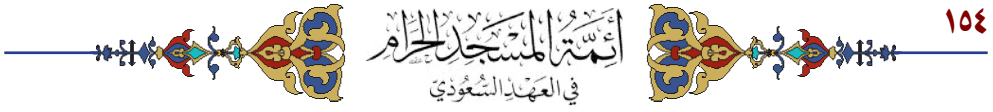 ١٥٤
أَئِمَّةُ الْمَسْجِدِ الْحَرَامِ
فِي الْعَهْدِ السُّعُودِيّ